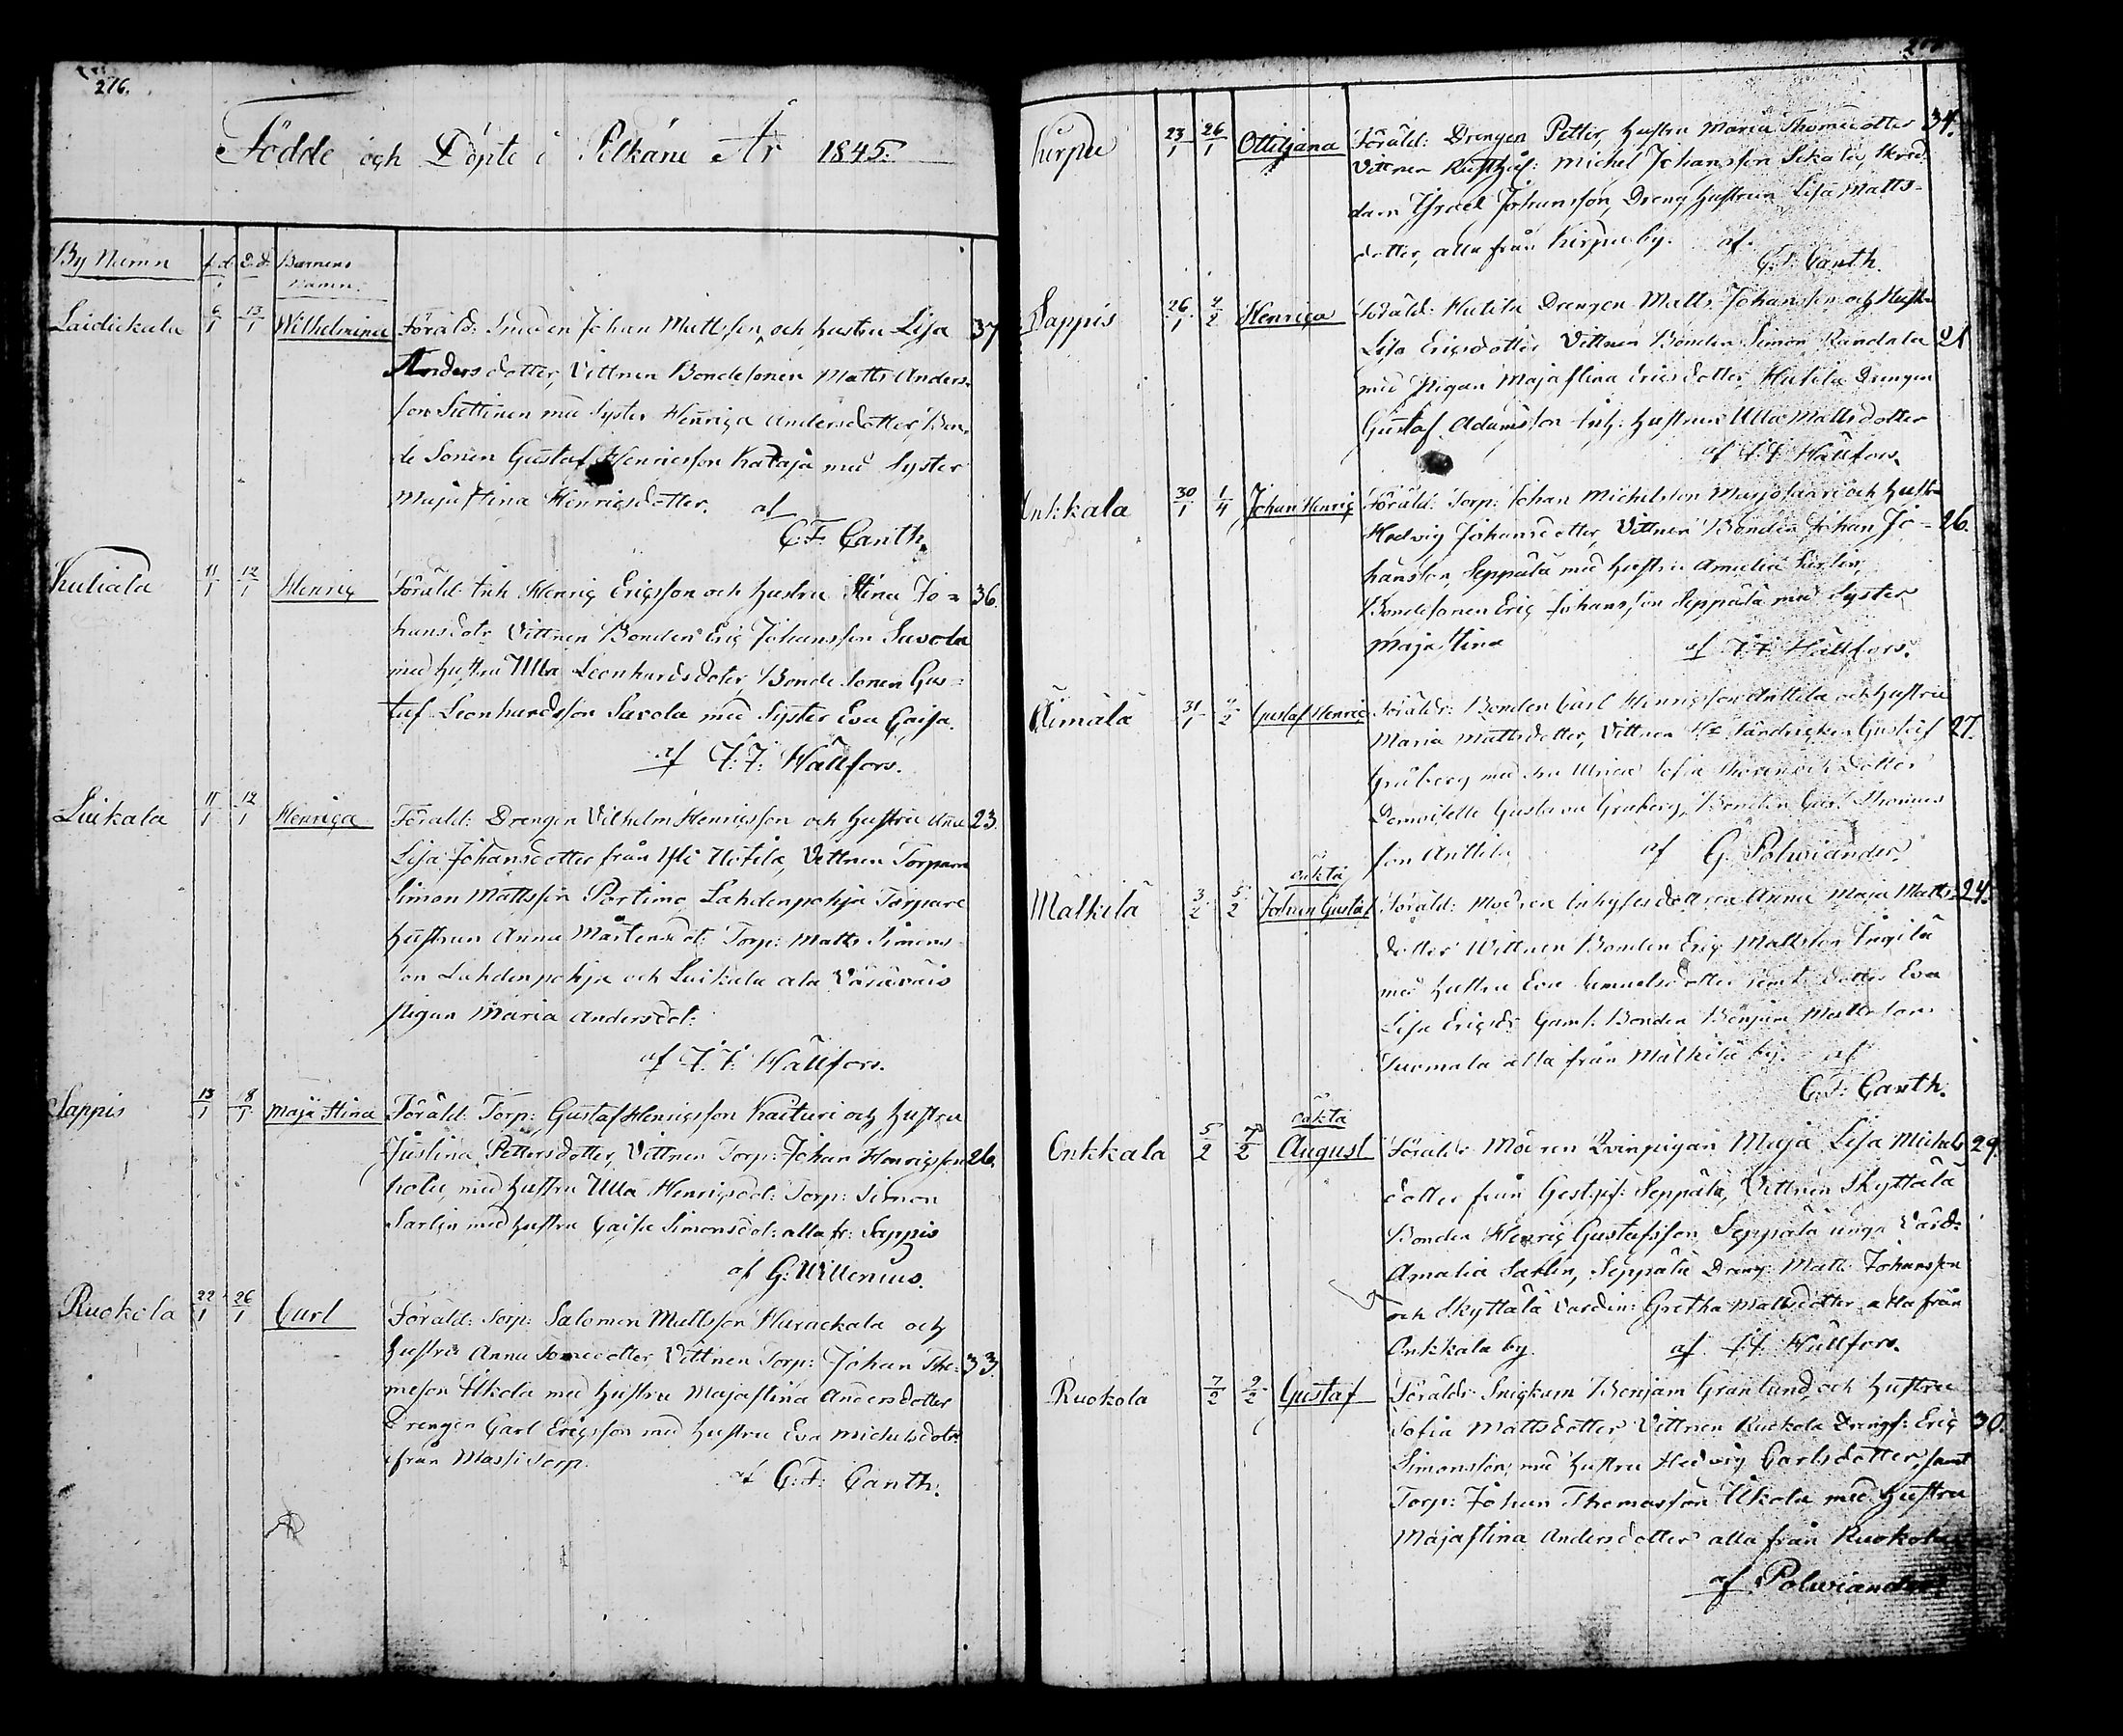 276.
Födde och Döpte i Pelkäne År 1845.
By Namn f.d. D.d. Barnens
Namn.
Laidickala 6/1 13/1 Wilhelmina Föräld: Smeden Johan Mattsson, och hustru Lisa 37
Andersdotter, Vittnen Bondesonen Matts Anders-
son Suttinen med Syster Henrica Andersdotter, Bon-
de Sonen Gustaf Henricsson Kataja med Syster
Majastina Henricsdotter. af
C. F. Canth.
Kuliala 11/1 12/1 Henric Föräld: Inh Henric Ericsson och hustru Stina Jo= 36.
hansdotr Vittnen Bonden Eric Johansson Savola
med hustru Ulla Leonhardsdoter, Bonde sonen Gus=
taf Leonhardsson Savola med Syster Eva Caisa.
af F. F. Hällfors.
Luikala 11/1 12/1 Henrica Föräld: Drengen Vilhelm Henricsson och hustru Anna 23.
Lisa Johansdotter från Yli Uotila, Vittnen Torparn
Simon Mattsson Portimo Lahdenpohja Torpare
hustrun Anna Mårtensdot: Torp: Matts Simons
son Lahdenpohja och Luikala ala
pigan Maria Andersdot:
af F. F. Hällfors.
Sappis 13/1 18/1 Maja Stina Föräld: Torp: Gustaf Henricsson Kaituri och hustru
Justina Pettersdotter, Vittnen Torp: Johan Henricsson 26.
med hustru Ulla Henricsdot: Torp: Simon
Sarlin med hustru Caisa Simonsdot: alla fr: Sappis
af G. Willenius.
Ruokola 22/1 26/1 Carl Föräld: Torp: Salomon Mattsson Harackala och
hustru Anna Tomædotter, Vittnen Torp: Johan Tho- 33.
meson Ukola med hustru Majastina Andersdotter
Drengen Carl Ericsson med hustru Eva Michelsdotr
ifrån Massi Torp.
af C. F. Canth.
Kirpu 23/1 26/1 Ottiljana Föräld: Drengen Petter, hustru Maria Thomædotter 34.
Vittnen Rusth: Michel Johansson Sikala,
Israel Johansson, Dreng hustrun Lisa Matts-
dotter, alla från Kirpu by. af.
C. F. Canth.
Sappis 26/1 2/2 Henrica Föräld: Hutila Drengen Matts Johansson och Hustr
Lisa Ericsdotter Vittnen Bonden Simon Randala 21
med Pigan Majastina Ericsdotter, Hutila Drengen
Gustaf Adamsson Inh: hustrun Ulla Mattsdotter
af F. F. Hällfors.
Onkkala 30/1 1/4 Johan Henric Föräld: Torp: Johan Michelsson Marjosaari och hustru
Hedvig Johansdotter, Vittnen Bonden Johan Jo- 26.
hansson, Seppälä med hustru Amalia Sarlin,
Bondesonen Eric Johansson Seppälä med Syster
Majastina af F. F. Hällfors.
Äimälä 31/1 2/2 Gustaf Henric Föräldr: Bonden Carl Henricsson Anttila och hustru
Maria Mattsdotter, Vittnen Hr Gustaf 27.
Gruberg med Ulrica Sofia dotter
Demoiselle Gustava Gruberg, Bonden Carl Thomas
son Anttila af G. Polwiander.
oäkta
Mälkilä 3/2 5/2 Johan Gustaf Föräld: Modren Inhyses Anna Maja Matts 24.
dotter Wittnen Bonden Eric Mattsson
med hustru Eva Samuelsdotter samt dotter Eva
Lisa Ericsdr Gaml: Bonden Benjam Matts son
Tuomala alla från Mälkilä by. af
C. F. Canth.
oäkta
Onkkala 5/2 7/2 August Föräldr: Modren Qvinpigan Maja Lisa Michels 29.
dotter från Gestgif: Seppälä, Vittnen Skyttälä
Bonden Henric Gustafsson, Seppälä unga Värd:
Amalia Sarlin, Seppälä Dräng: Matts Johansson
och Skyttälä Värdin: Gretha Mattsdotter alla från
Onkkala by. af F. F. Hällfors.
Ruokola 7/2 9/2 Gustaf Föräldr Snickarn Benjam Granlund och hustru
Sofia Mattsdotter Vittnen Ruokola Drengs: Eric 30.
Simonsson, med hustru Hedvig Carlsdotter, samt
Torp: Johan Thomasson Ukola med hustru
Majastina Andersdotter alla från Ruokola
af Polwiander